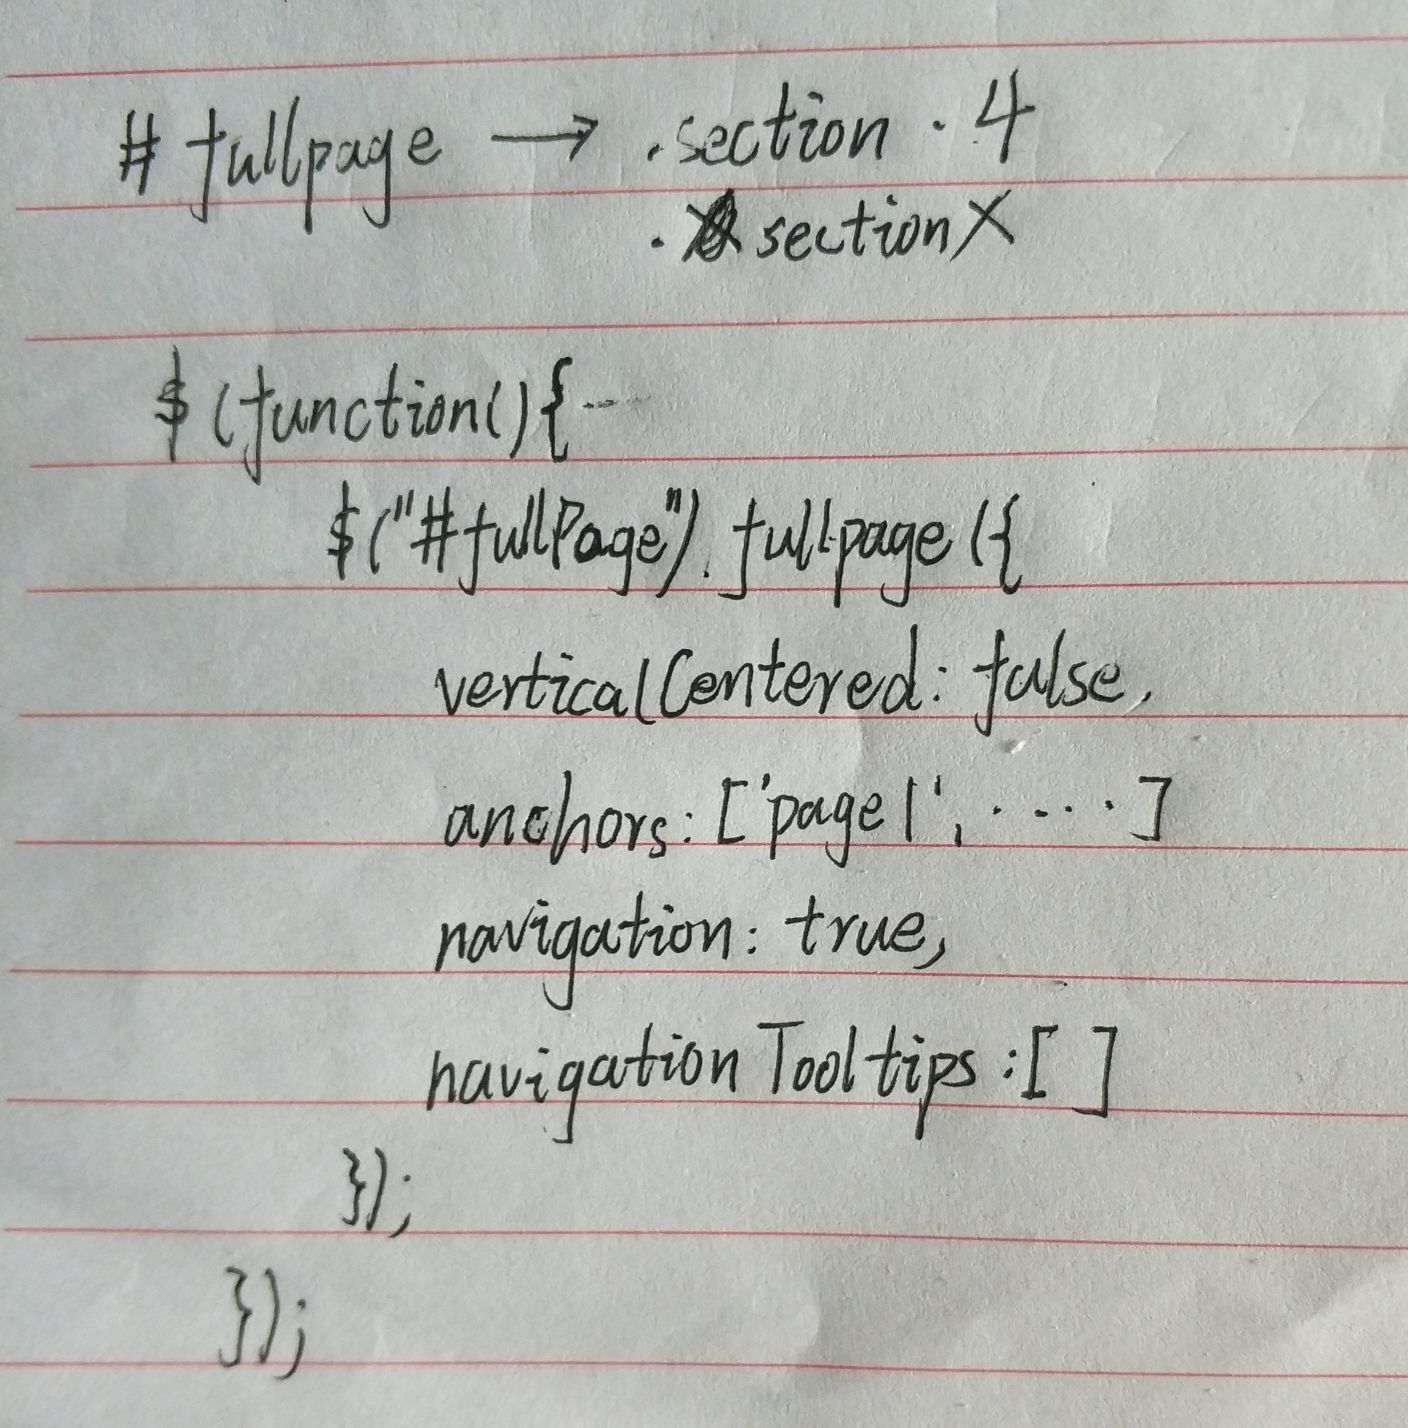 # fullpage → .section · 4
. sectionX
$(function(){---
$("#fullPage").fullpage({
verticalCentered: false,
anchors: ['page1', ·····]
navigation: true,
navigationTooltips:[ ]
});
});